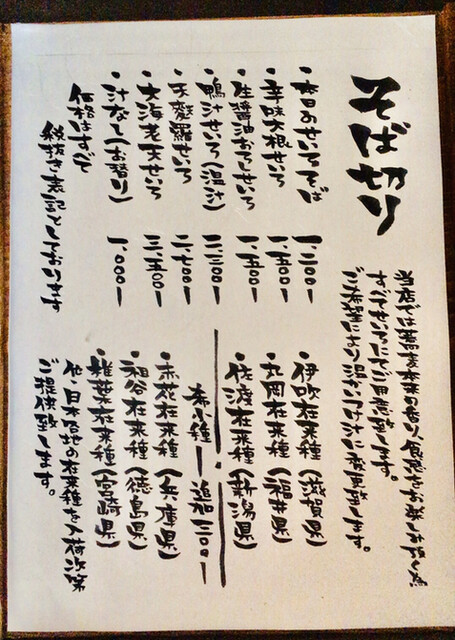 そば切り
当店では蕎麦本来の香り、食感をお楽しみ頂く為
すべてせいろにてご用意致します。
ご機嫌により温かいつけ汁に変更致します。
・本日のせいろそば 一、二〇〇ー
・辛味大根せいろ 一、五〇〇ー
・生醤油おろしせいろ 一、五〇〇ー
・鴨汁せいろ(温汁) 二、二〇〇ー
・天麩羅せいろ 二、七〇〇ー
・大海老天せいろ 三、五〇〇ー
・汁なし(お替り) 一、〇〇〇ー
価格はすべて
税抜き表記としております
伊吹在来種(滋賀県)
丸岡在来種(福井県)
佐渡在来種(新潟県)
希少種ー追加二〇〇ー
赤花在来種(兵庫県)
祖谷在来種(徳島県)
椎葉在来種(宮崎県)
他、日本各地の在来種を入荷次第
ご提供致します。